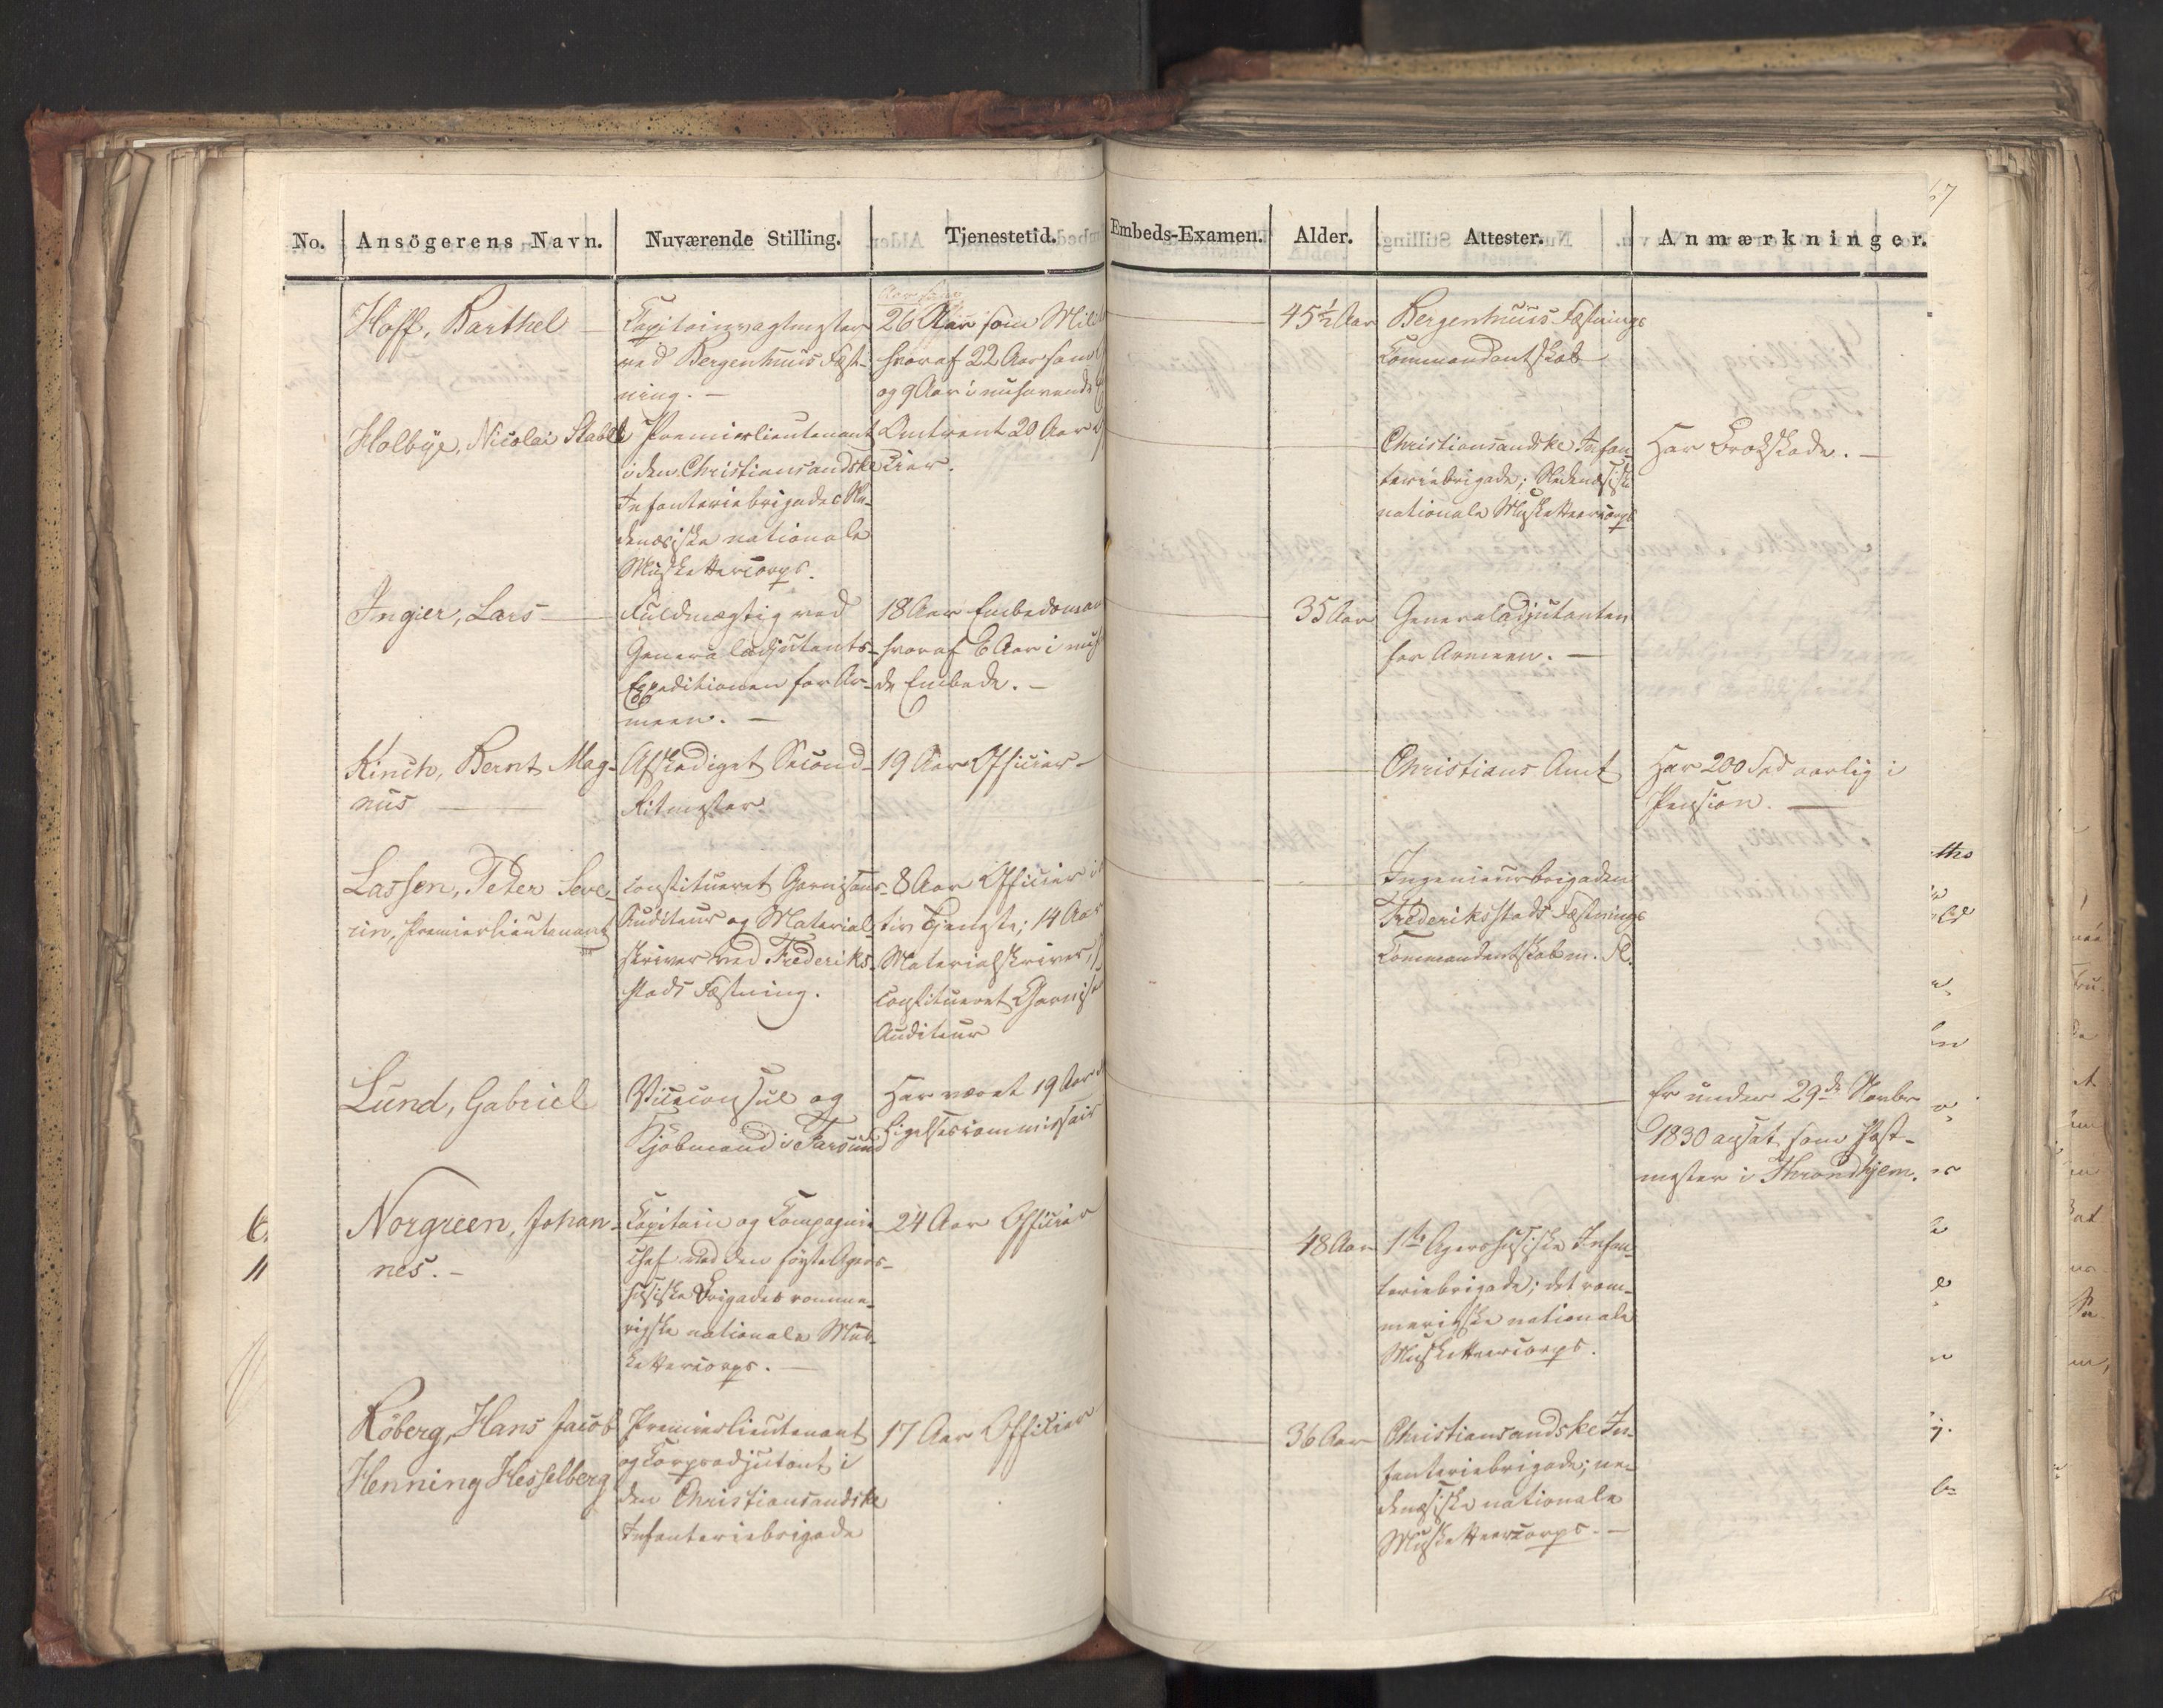 No. Ansögerens Navn. Nuværende Stilling. Tjenestetid. Embeds-Examen. Alder. Attester. Anmærkninger.
67
Hoff, Barthel
Capitainvagtmester
ved Bergenhuus Fæst-
ning. —
26 Aar som Mili
hvoraf 22 Aar som
og 9 Aar i nuhavende
45½ Aar
Bergenhuus Fæstnings
Commandantskab
Holbye, Nicolai Stabel
Premierlieutenant
i den Christiansandske
Infanteriebrigades Ne-
denæsiske nationale
Musketteercorps.
Omtrent 20 Aar
cier.
Christiansandske Infan-
teriebrigade; Nedenæsiske
nationale Musketteercorps
Har Brokskade. —
Ingier, Lars —
Fuldmægtig ved
Generaladjutants-
Expeditionen for Ar-
meen. —
18 Aar Embedsman
hvoraf 6 Aar i nuh
de Embede. —
35 Aar
Generaladjutanten
for Armeen. —
Kinch, Bernt Mag-
nus —
Afskediget Second-
Ritmester.
19 Aar Officier
Christians Amt
Har 200 Spd aarlig i
Pension. —
Lassen, Peter Seve-
rin, Premierlieutenant
constitueret Garnisons-
Auditeur og Material-
skriver ved Frederiks-
stads Fæstning.
8 Aar Officier i
tiv Tjeneste; 14 Aar
Materialskriver,
constitueret Garniso
Auditeur
Ingenieurbrigaden
Frederiksstads Fæstnings
Commandantskab m. Fl.
Lund, Gabriel
Viceconsul og
Kjøbmand i Farsund
Har været 19 Aar
ligelsescommissair
Er under 29de Novbr
1830 ansat som Post-
mester i Throndhjem.
Norgreen, Johan-
nes. —
Capitain og Compagnie
chef ved den første Agers-
husiske Brigades romme-
rigske nationale Mus-
ketteercorps. —
24 Aar Officier
48 Aar
1ste Agershusiske Infan-
teriebrigade; det rom-
merigske nationale
Musketteercorps.
Röberg, Hans Jacob
Henning Hesselberg
Premierlieutenant
og Corpsadjutant i
den Christiansandske
Infanteriebrigade
17 Aar Officier
36 Aar
Christiansandske In-
fanteriebrigade; ne-
denæsiske nationale
Musketteercorps. —